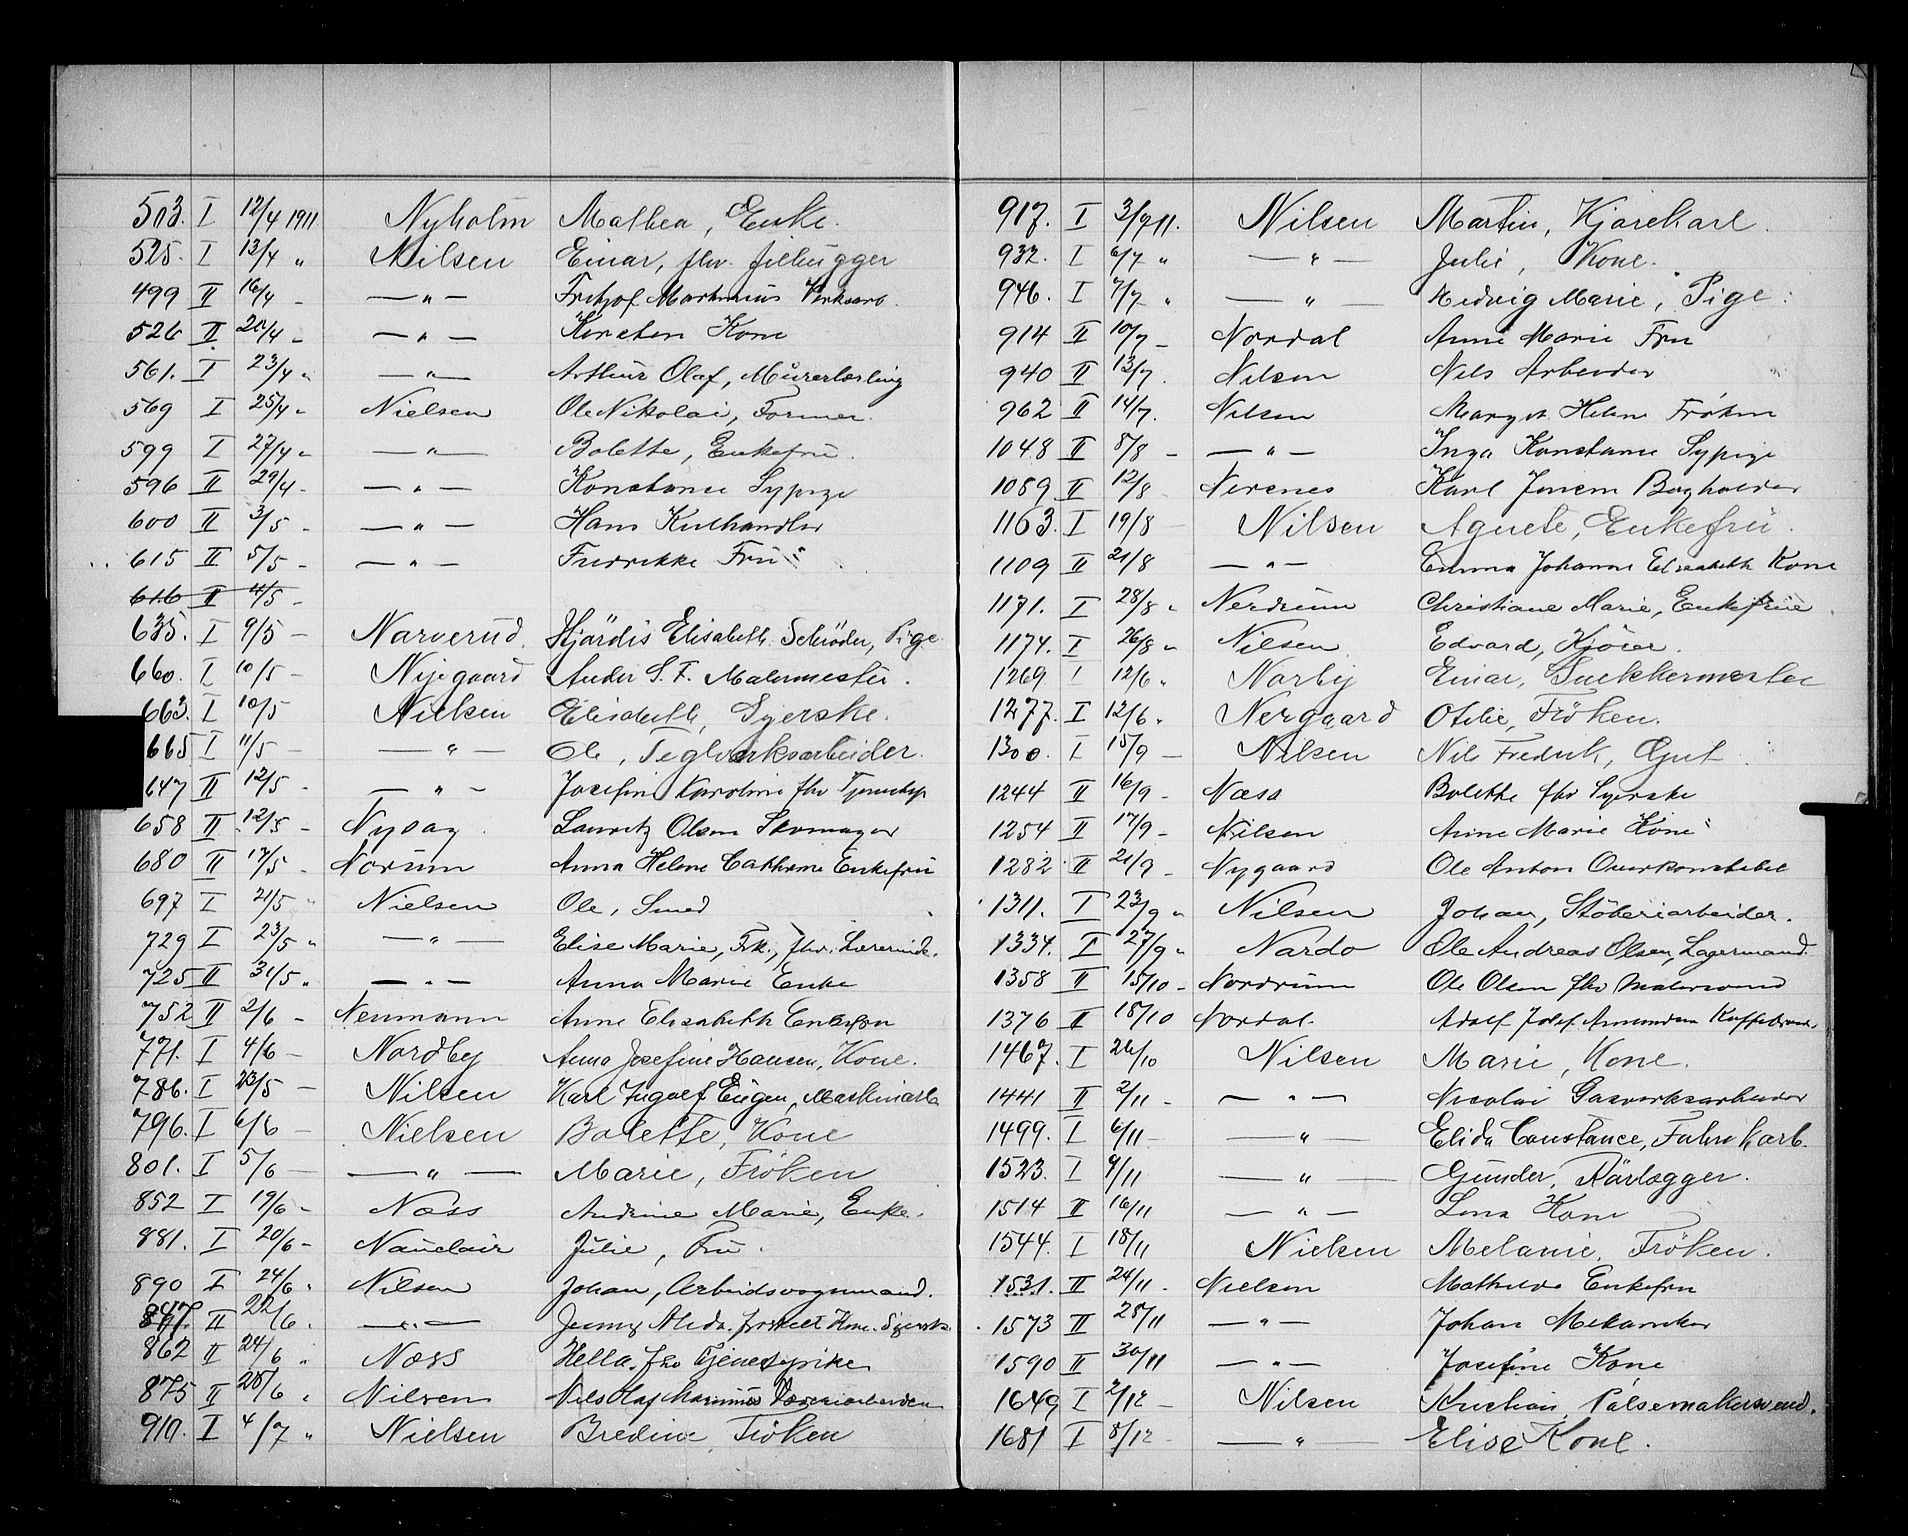 503. I 12/4 1911. Nyholm Mathea, Enke.
525. I 13/4 " Nilsen Einar, fhv.
499 II 16/4 - —"— Fritjof Martinius
526 II 20/4 - —"— Karsten Kone
561. I 23/4 " —"— Arthur Olaf, Murerlærling
569 I 25/4 " Nielsen Ole Nikolai, Former.
599 I 27/4 " —"— Bolette, Enkefru.
596 II 29/4 - —"— Konstance Sypige
600 II 3/5 - —"— Hans Kulhandler
615 II 5/5 - —"— Fredrikke Fru
616 II 4/5 -
635. I 9/5 — Narverud. Hjördis Elisabeth Schröder, Pige
660. I 10/5 — Nygaard Ander S. F. Malermester.
663. I 10/5 Nielsen Elisabeth, Syerske.
665 I 11/5 — —"— Ole, Teglverksarbeider.
647 II 12/5 - —"— Josefine Karoline fhv
658 II 12/5 - Nysag Lauritz Olsen Skomager
680 II 17/5 - Norum Anna Helene Cathrine Enkefru
697 I 21/5 " Nielsen Ole, Smed
729 I 23/5 " —"— Elise Marie, Frk., fhv. Lærerinde.
725 II 31/5 " —"— Anna Marie Enke
752 II 2/6 - Neumann Anne Elisabeth Enkefru
771. I 4/6 — Nordby Anna Josefine Hansen, Kone.
786. I 23/5 — Nilsen Karl Ingolf Eugen, Maskinarb
796. I 6/6 — Nielsen Bolette, Kone
801. I 5/6 — —"— Marie, Fröken
852 I 19/6 - Næss Andrine Marie, Enke.
881. I 20/6 - Nauclair Julie, Fru.
890 I 24/6 " Nilsen Johan, Arbeidsvognmand.
847. II 22/6. —"— Jenny Alida, fraskilt Kone. Syersk
862 II 24/6 " Næss Hella. fhv Tjenestepike
875 II 28/6 " Nilsen Nils Olaf Marinus
910. I 4/7 " Nielsen Bredine, Fröken
917. I 3/7 11. Nilsen Martin, Kjørekarl.
932. I 6/7 " —"— Julie, Kone.
946. I 7/7 " —"— Hedvig Marie, Pige.
914 II 10/7 - Nordal Anne Marie Fru
940 II 13/7. Nilsen Nils Arbeider
962 II 14/7. Nilsen Margit Helene Frøken
1048 II 8/8 - —"— Inga Konstance Sypige
1089 II 12/8 Nersnes Karl Jensen Bogholder
1163. I 19/8 — Nilsen Agnete, Enkefru.
1109 II 21/8 —"— Emma Johanne Elisabeth Kone
1171. I 28/8 " Nerdrum Christiane Marie, Enkefrue.
1174. I 26/8 " Nilsen Edvard, Kjörer.
1269 I 12/6 " Norby Einar, Snekkermester
1277. I 12/6 " Nergaard Otilie, Fröken.
1300. I 15/9 — Nilsen Nils Fredrik, Gut
1244 II 16/9 - Næss Bolette fhv Syerske
1254 II 17/9 - Nilsen Anne Marie Kone
1282 II 21/9 - Nygaard Ole Anton Overkonstabel
1311. I 23/9 " Nilsen Johan, Stöberiarbeider.
1334. I 27/9 " Nardo Ole Andreas Olsen, Lagermand.
1358 II 15/10 - Nordrum Ole Olsen fhv Malersvend
1376 II 18/10 Nordal. Adolf Josef Amundsen
1467. I 26/10 Nilsen Marie, Kone.
1441 II 2/11 - —"— Nicolai Gasverksarbeider
1499. I 6/11 — —"— Elida Constance,
1523. I 9/11 —"— Gunder, Rörlægger.
1514 II 16/11 —"— Lena Kone
1544. I 18/11 Nielsen Melanie, Fröken.
1531. II 24/11 - Nielsen Mathilde Enkefru
1573 II 28/11 —"— Johan Mekaniker
1590 II 30/11 —"— Josefine Kone
1649 I 2/12 — Nilsen Kristian, Pölsemakersvend.
1681 I 8/12 — —"— Elise Kone.